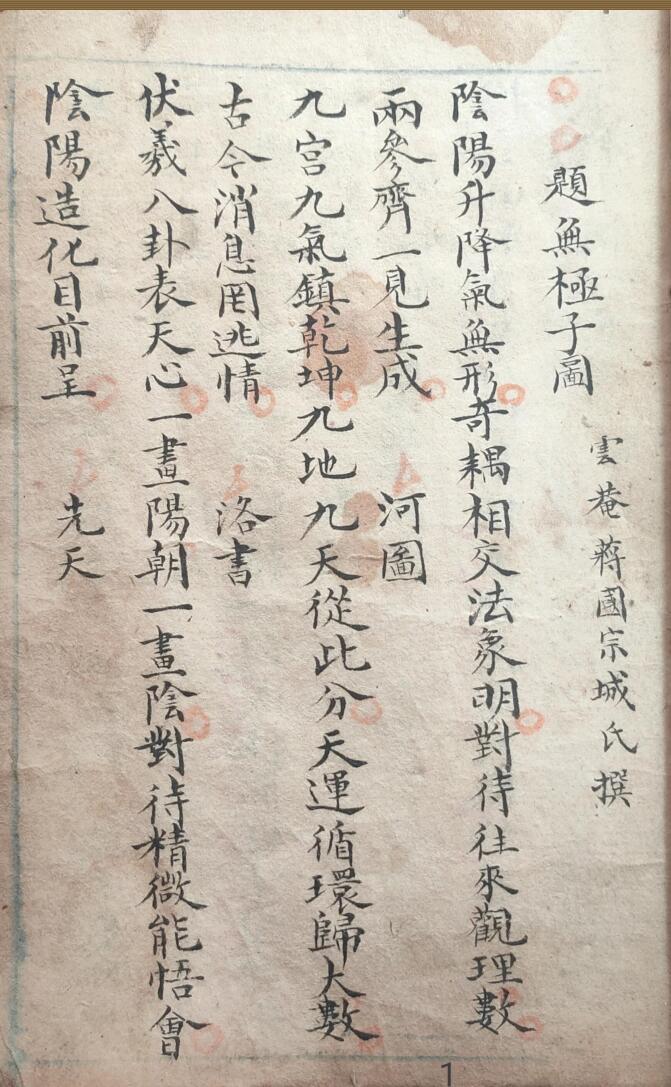 題無極子圖
雲菴蔣國宗城氏撰
陰陽升降氣無形奇耦相交法象明對待往來觀理數
兩參齊一見生成 河圖
九宮九氣鎮乾坤九地九天從此分天運循環歸大數
古今消息罔逃情 洛書
伏羲八卦表天心一畫陽朝一畫陰對待精微能悟會
陰陽造化目前呈 先天
1